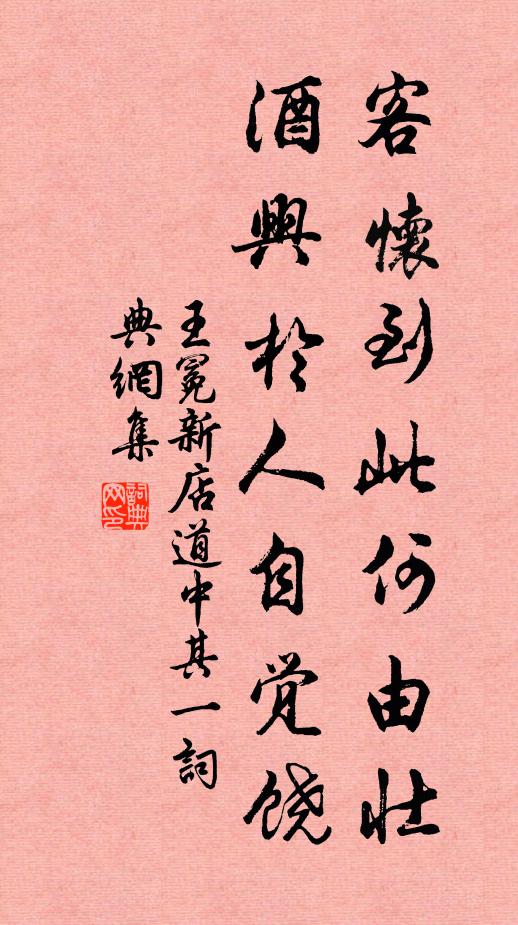 客懷到此何由壯
酒興於人自觉饶
王冕新店道中其一詞
典網集
詞典
网印